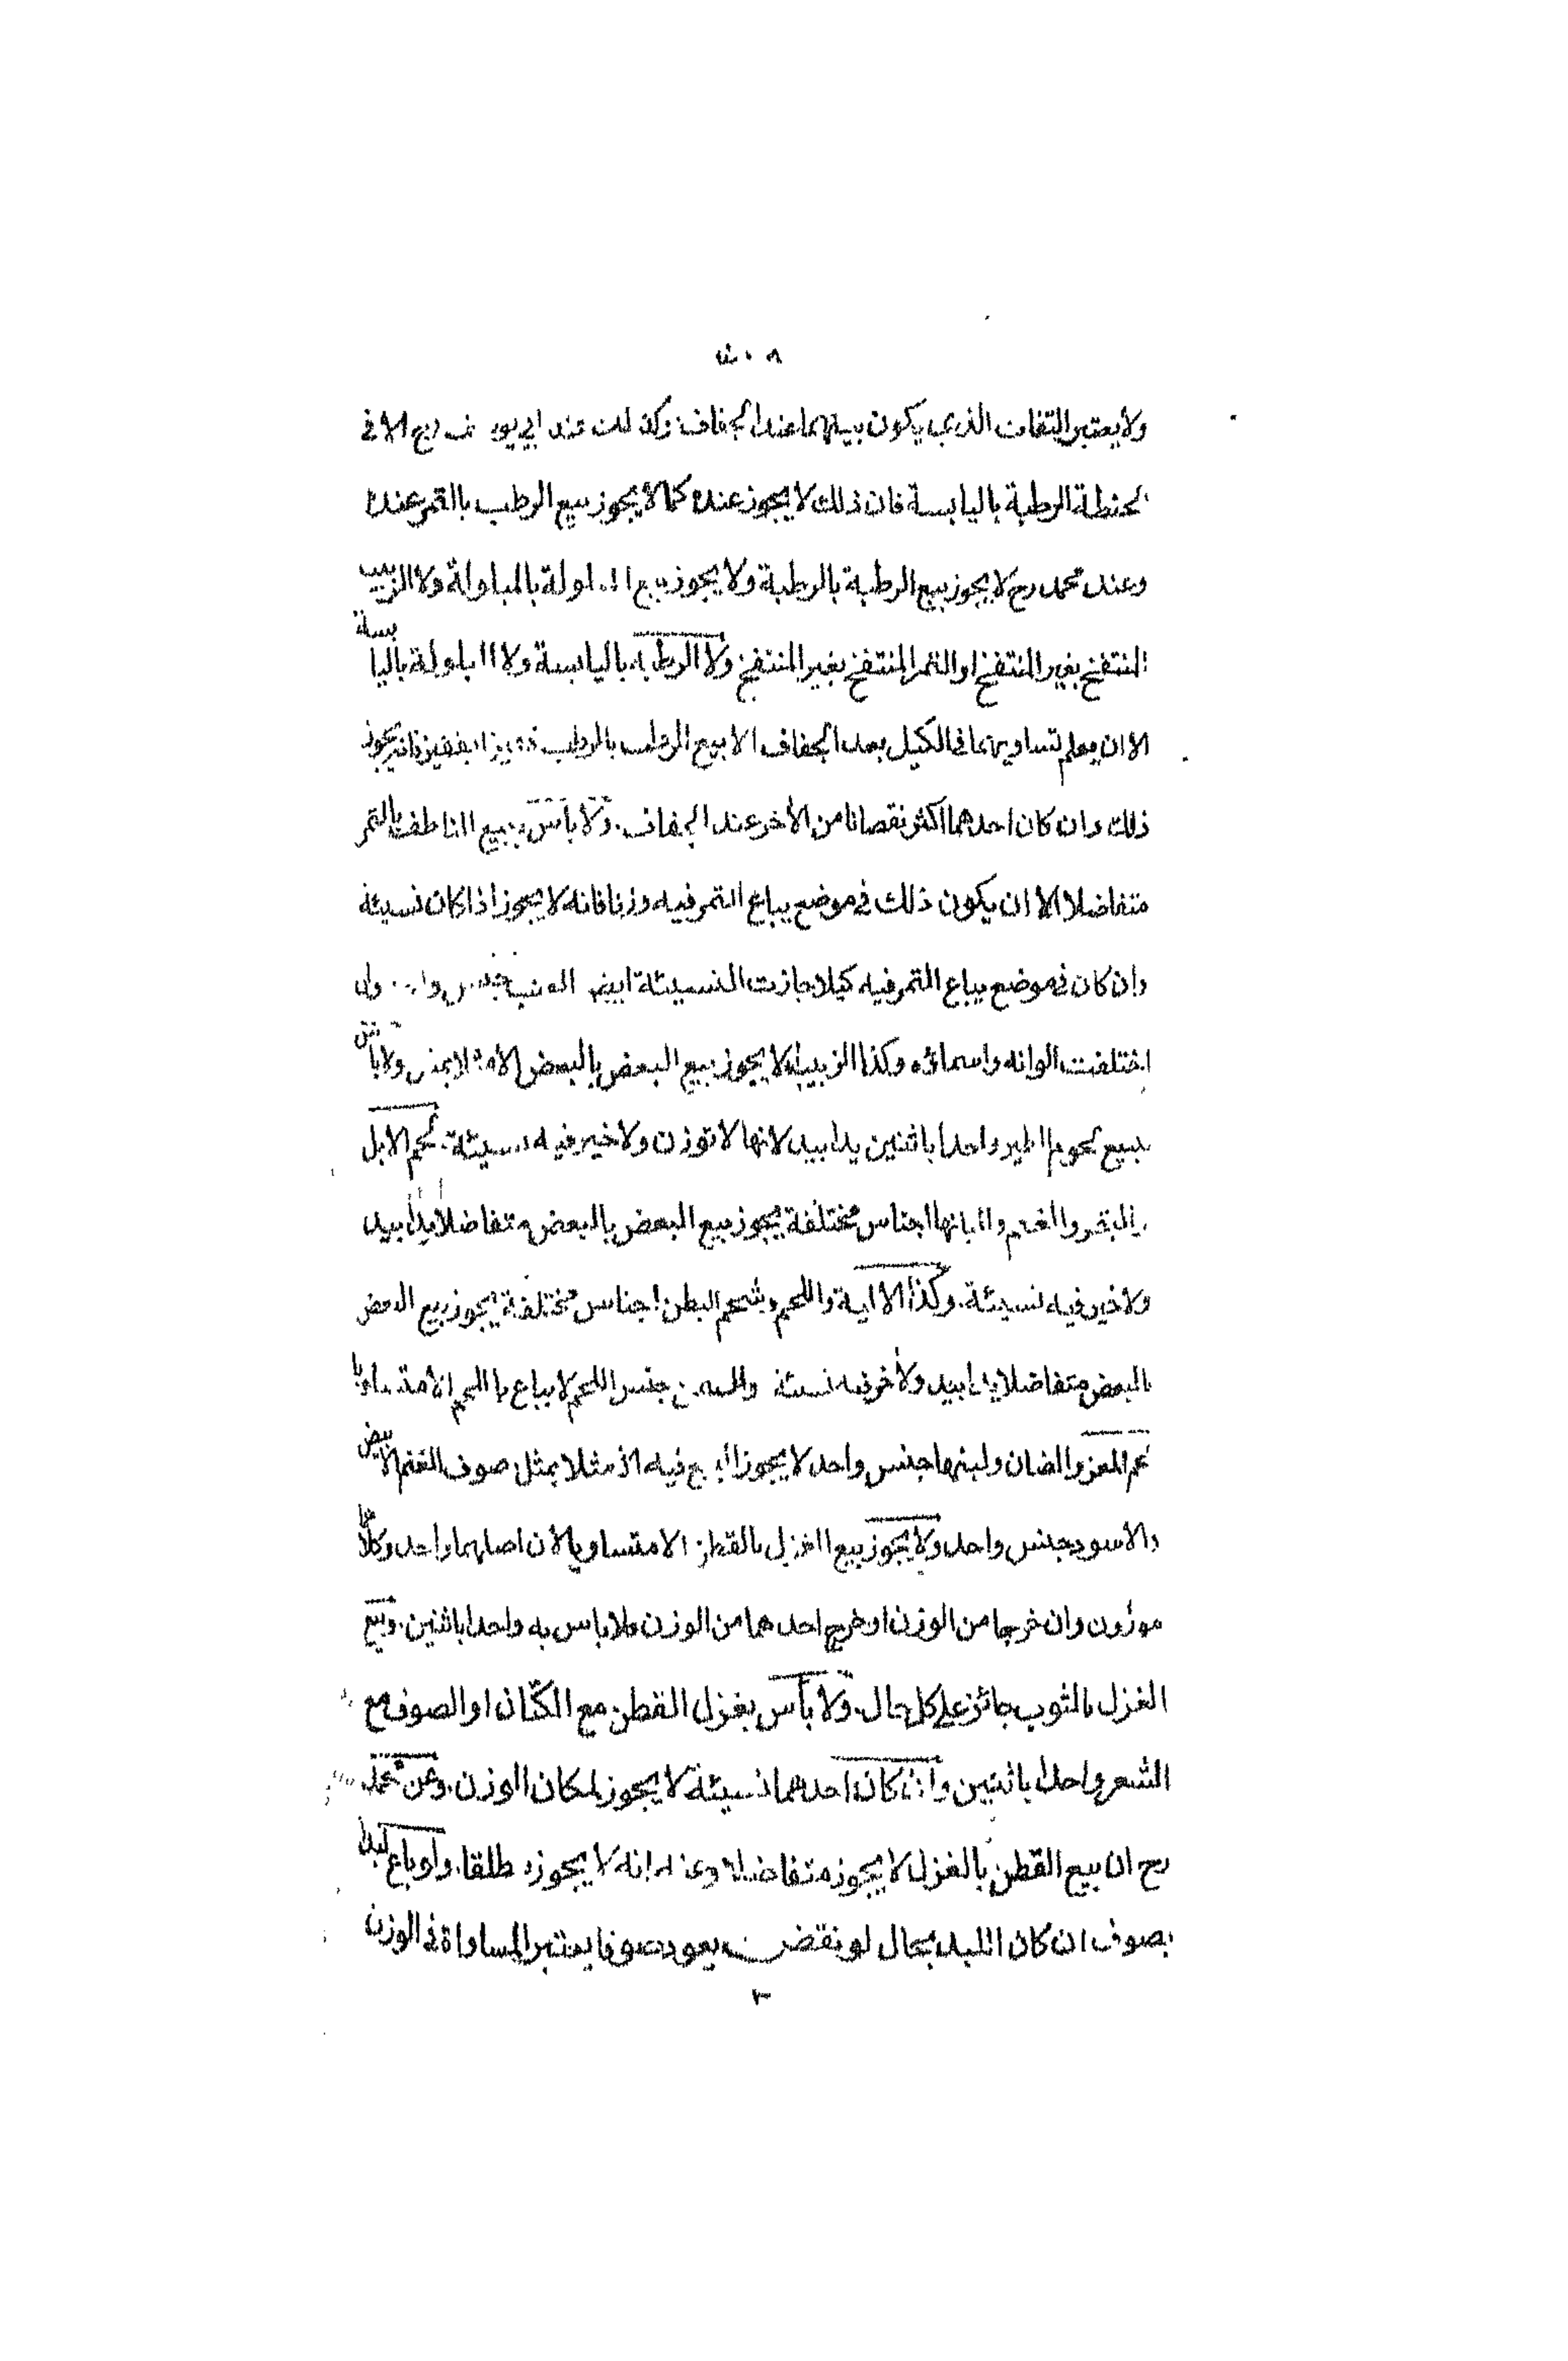 ولا يعتبر التفاوت الذي يكون بينهما عند الجفاف وكذلك عند ابي يوسف رح الا في
الحنطة الرطبة باليابسة فان ذلك لا يجوز عنده كما لا يجوز بيع الرطب بالتمر عندهما
وعند محمد رح لا يجوز بيع الرطبة بالرطبة ولا يجوز بيع المبلولة بالمبلولة ولا الزبيب
المنتفخ بغير المنتفخ او التمر المنتفخ بغير المنتفخ ولا الرطبة باليابسة ولا المبلولة باليابسة
الا ان يعلم تساويهما في الكيل بعد الجفاف الا بيع الرطب بالرطب قفيزا بقفيز فانه يجوز
ذلك وان كان احدهما اكثر نقصانا من الاخر عند الجفاف. ولا بأس ببيع الناطف بالتمر
متفاضلا الا ان يكون ذلك في موضع يباع التمر فيه وزنا فانه لا يجوز اذا كان نسيئة
وان كان في موضع يباع التمر فيه كيلا جازت النسيئة ايضا العنب جنس وان
اختلفت الوانه واسماؤه وكذا الزبيب لا يجوز بيع البعض بالبعض الا مثلا بمثل ولا بأس
ببيع لحوم الطير واحدا باثنين يدا بيد لانها لا توزن ولا خير فيه نسيئة. لحم الابل
والبقر والغنم والبانها اجناس مختلفة يجوز بيع البعض بالبعض متفاضلا يدا بيد
ولا خير فيه نسيئة. وكذا الالية واللحم وشحم البطن اجناس مختلفة يجوز بيع البعض
بالبعض متفاضلا يدا بيد ولا خير فيه نسيئة جنس اللحم لا يباع باللحم الا متساويا
لحم المعز والضان ولبنهما جنس واحد لا يجوز البيع فيه الا مثلا بمثل صوف الغنم الابيض
والاسود جنس واحد ولا يجوز بيع الغزل بالقطن الا متساويا لان اصلهما واحد وكلاهما
موزون وان خرجا من الوزن او خرج احدهما من الوزن فلا باس به واحدا باثنين. وبيع
الغزل بالثوب جائز على كل حال. ولا بأس بغزل القطن مع الكتان او الصوف مع
الشعر واحدا باثنين وان كان احدهما نسيئة لا يجوز لمكان الوزن. وعن محمد
رح ان بيع القطن بالغزل لا يجوز متفاضلا وعنه انه لا يجوز مطلقا. ولو باع لبدا
بصوف ان كان اللبد بحال لو نقض يعود صوفا يعتبر المساواة في الوزن